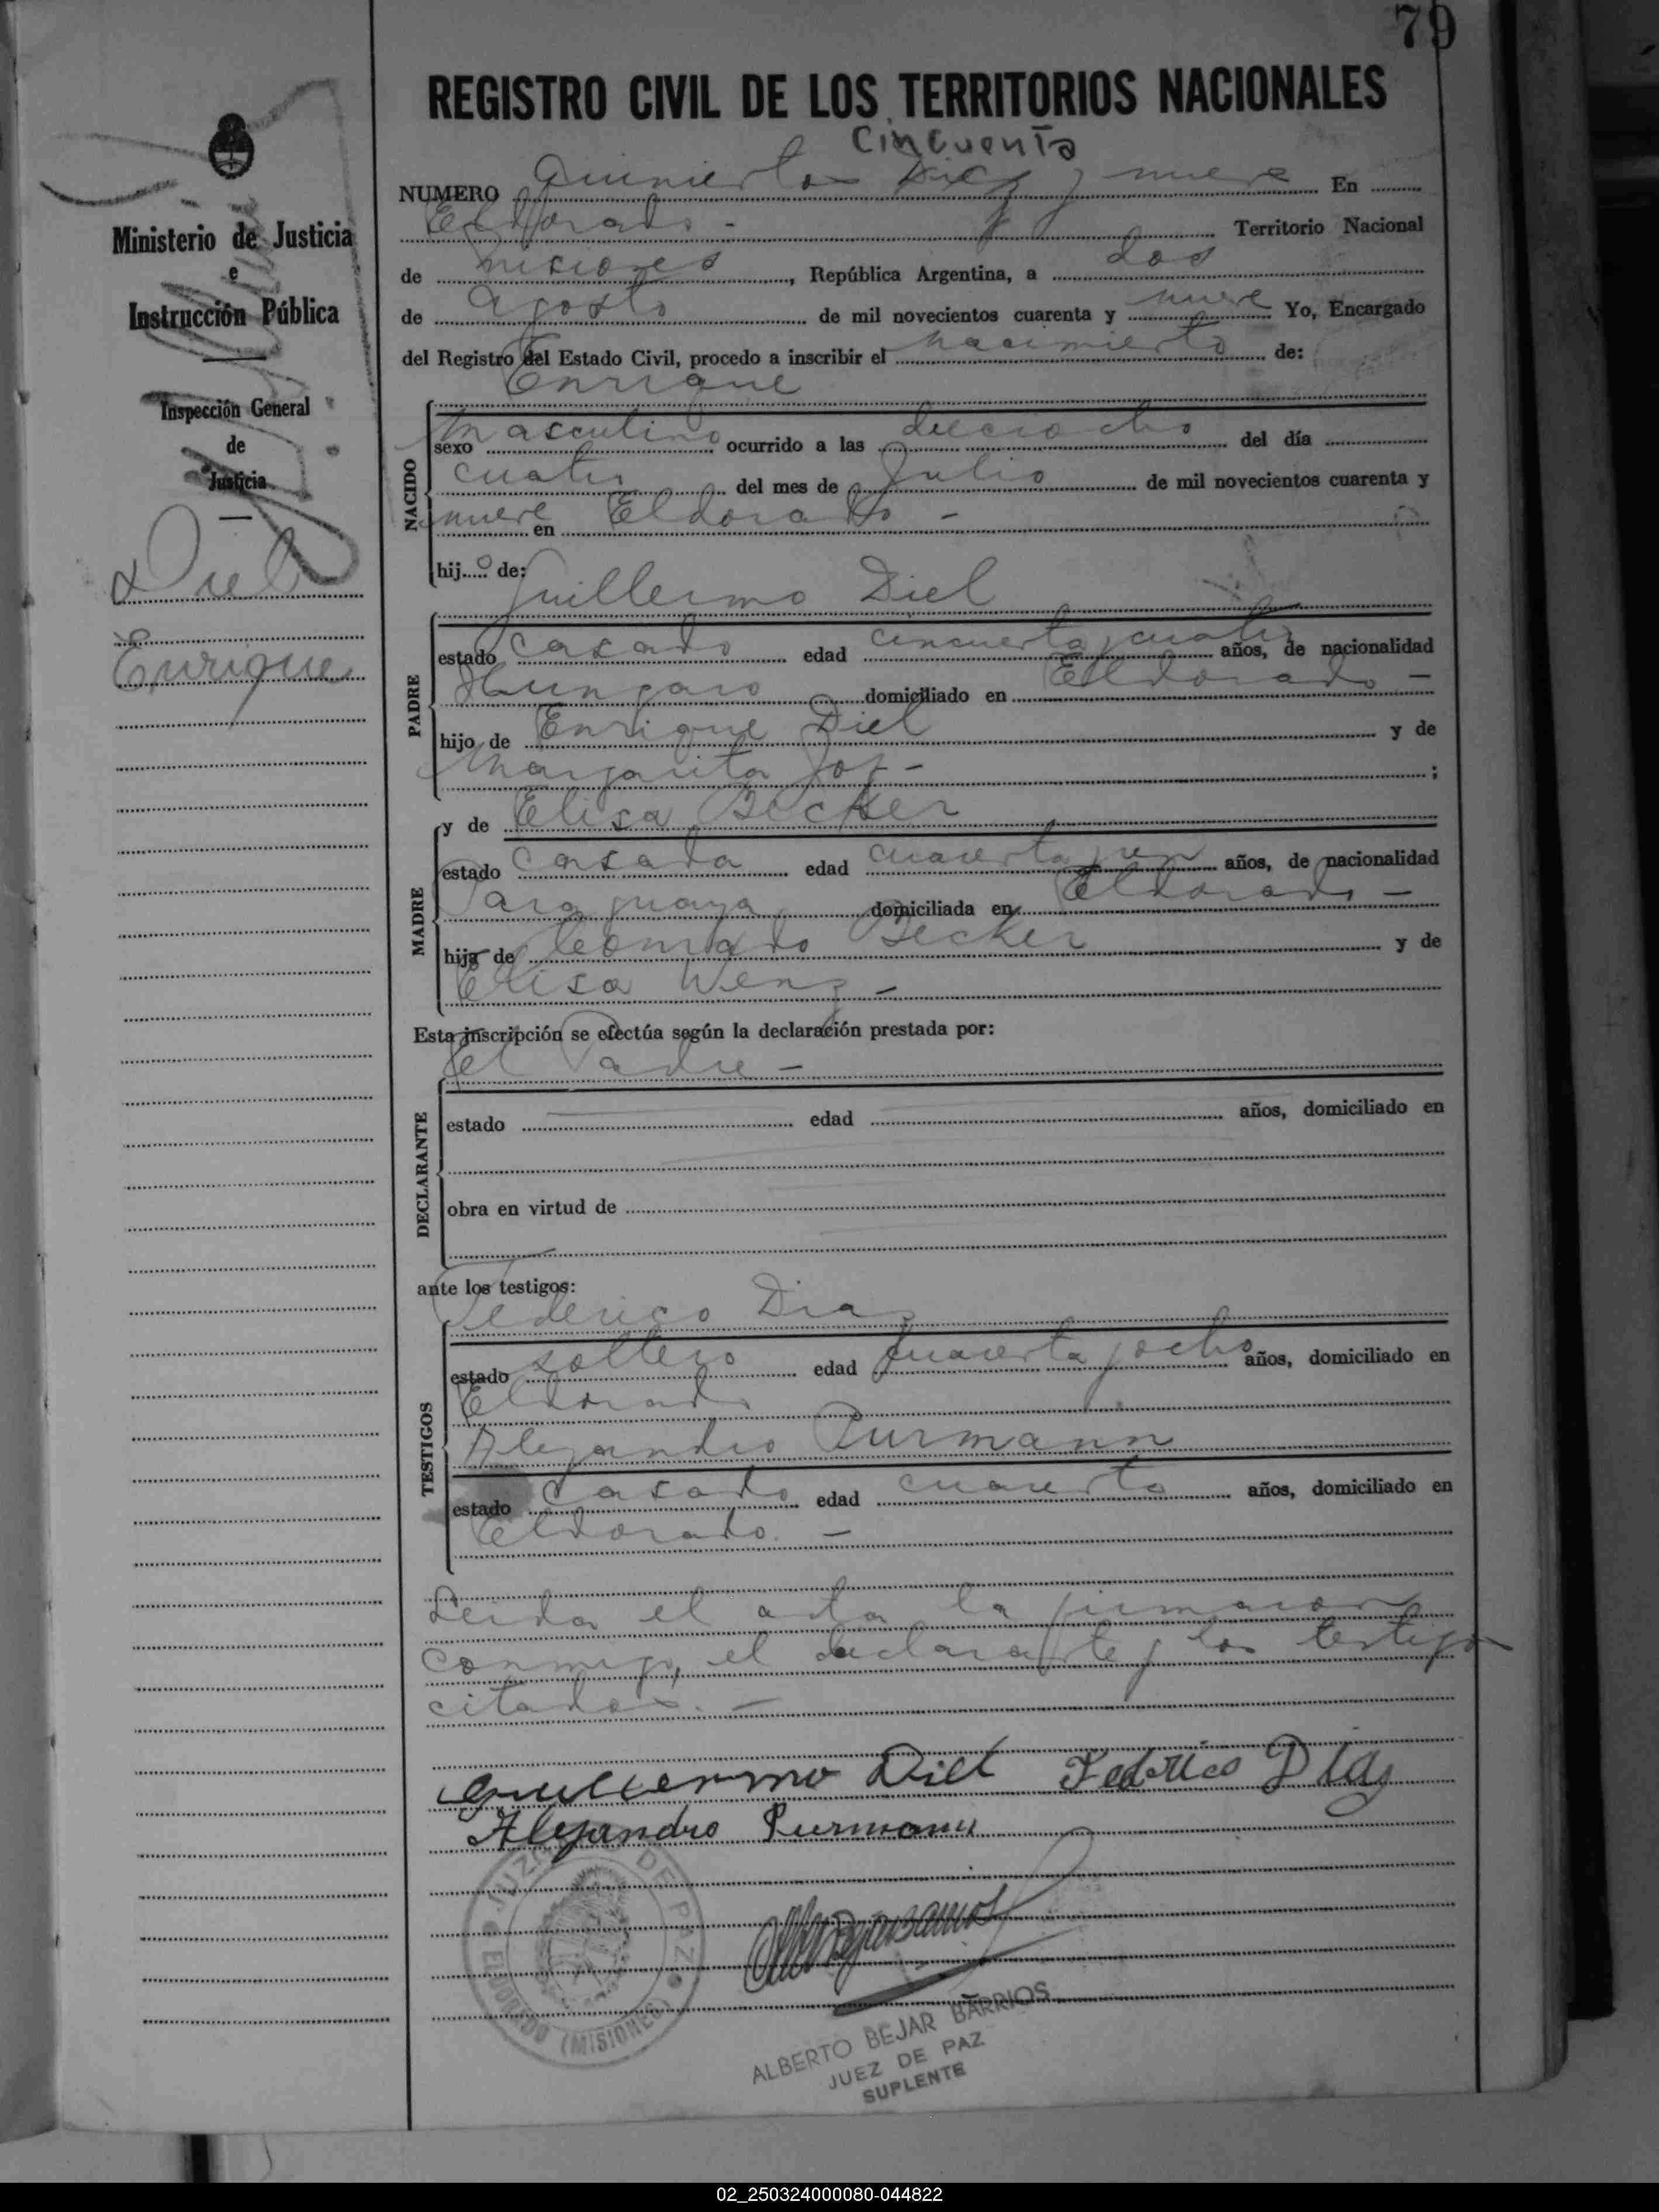 79
REGISTRO CIVIL DE LOS TERRITORIOS NACIONALES
Cincuenta
NUMERO Quinientos Diez y nueve En
Eldorado - Territorio Nacional
de Misiones, República Argentina, a dos
de Agosto de mil novecientos cuarenta y nueve Yo, Encargado
del Registro del Estado Civil, procedo a inscribir el nacimiento de:
Enrique
NACIDO
sexo Masculino ocurrido a las dieciocho del día
cuatro del mes de Julio de mil novecientos cuarenta y
nueve en Eldorado -
hijo de:
Guillermo Diel
PADRE
estado casado edad cincuenta y cuatro años, de nacionalidad
Hungaro domiciliado en Eldorado -
hijo de Enrique Diel y de
Margarita -;
MADRE
y de Elisa Becker
estado casada edad cuarenta y un años, de nacionalidad
Paraguaya domiciliada en Eldorado -
hija de Conrado Becker y de
Elisa Wenz -
Esta inscripción se efectúa según la declaración prestada por:
el Padre -
DECLARANTE
estado edad años, domiciliado en
obra en virtud de
ante los testigos:
Federico Diaz
TESTIGOS
estado soltero edad cuarenta y ocho años, domiciliado en
Eldorado
Alejandro Purmann
estado casado edad cuarenta años, domiciliado en
Eldorado. -
Leida el acta, la firmaron
conmigo, el declarante y los testigos
citados. -
Guillermo Diel Federico Diaz
Alejandro Purmann
JUZGADO DE PAZ
ELDORADO (MISIONES)
ALBERTO BEJAR BARRIOS
JUEZ DE PAZ
SUPLENTE
Ministerio de Justicia
e
Instrucción Pública
Inspección General
de
Justicia
Diel
Enrique
02_250324000080-044822